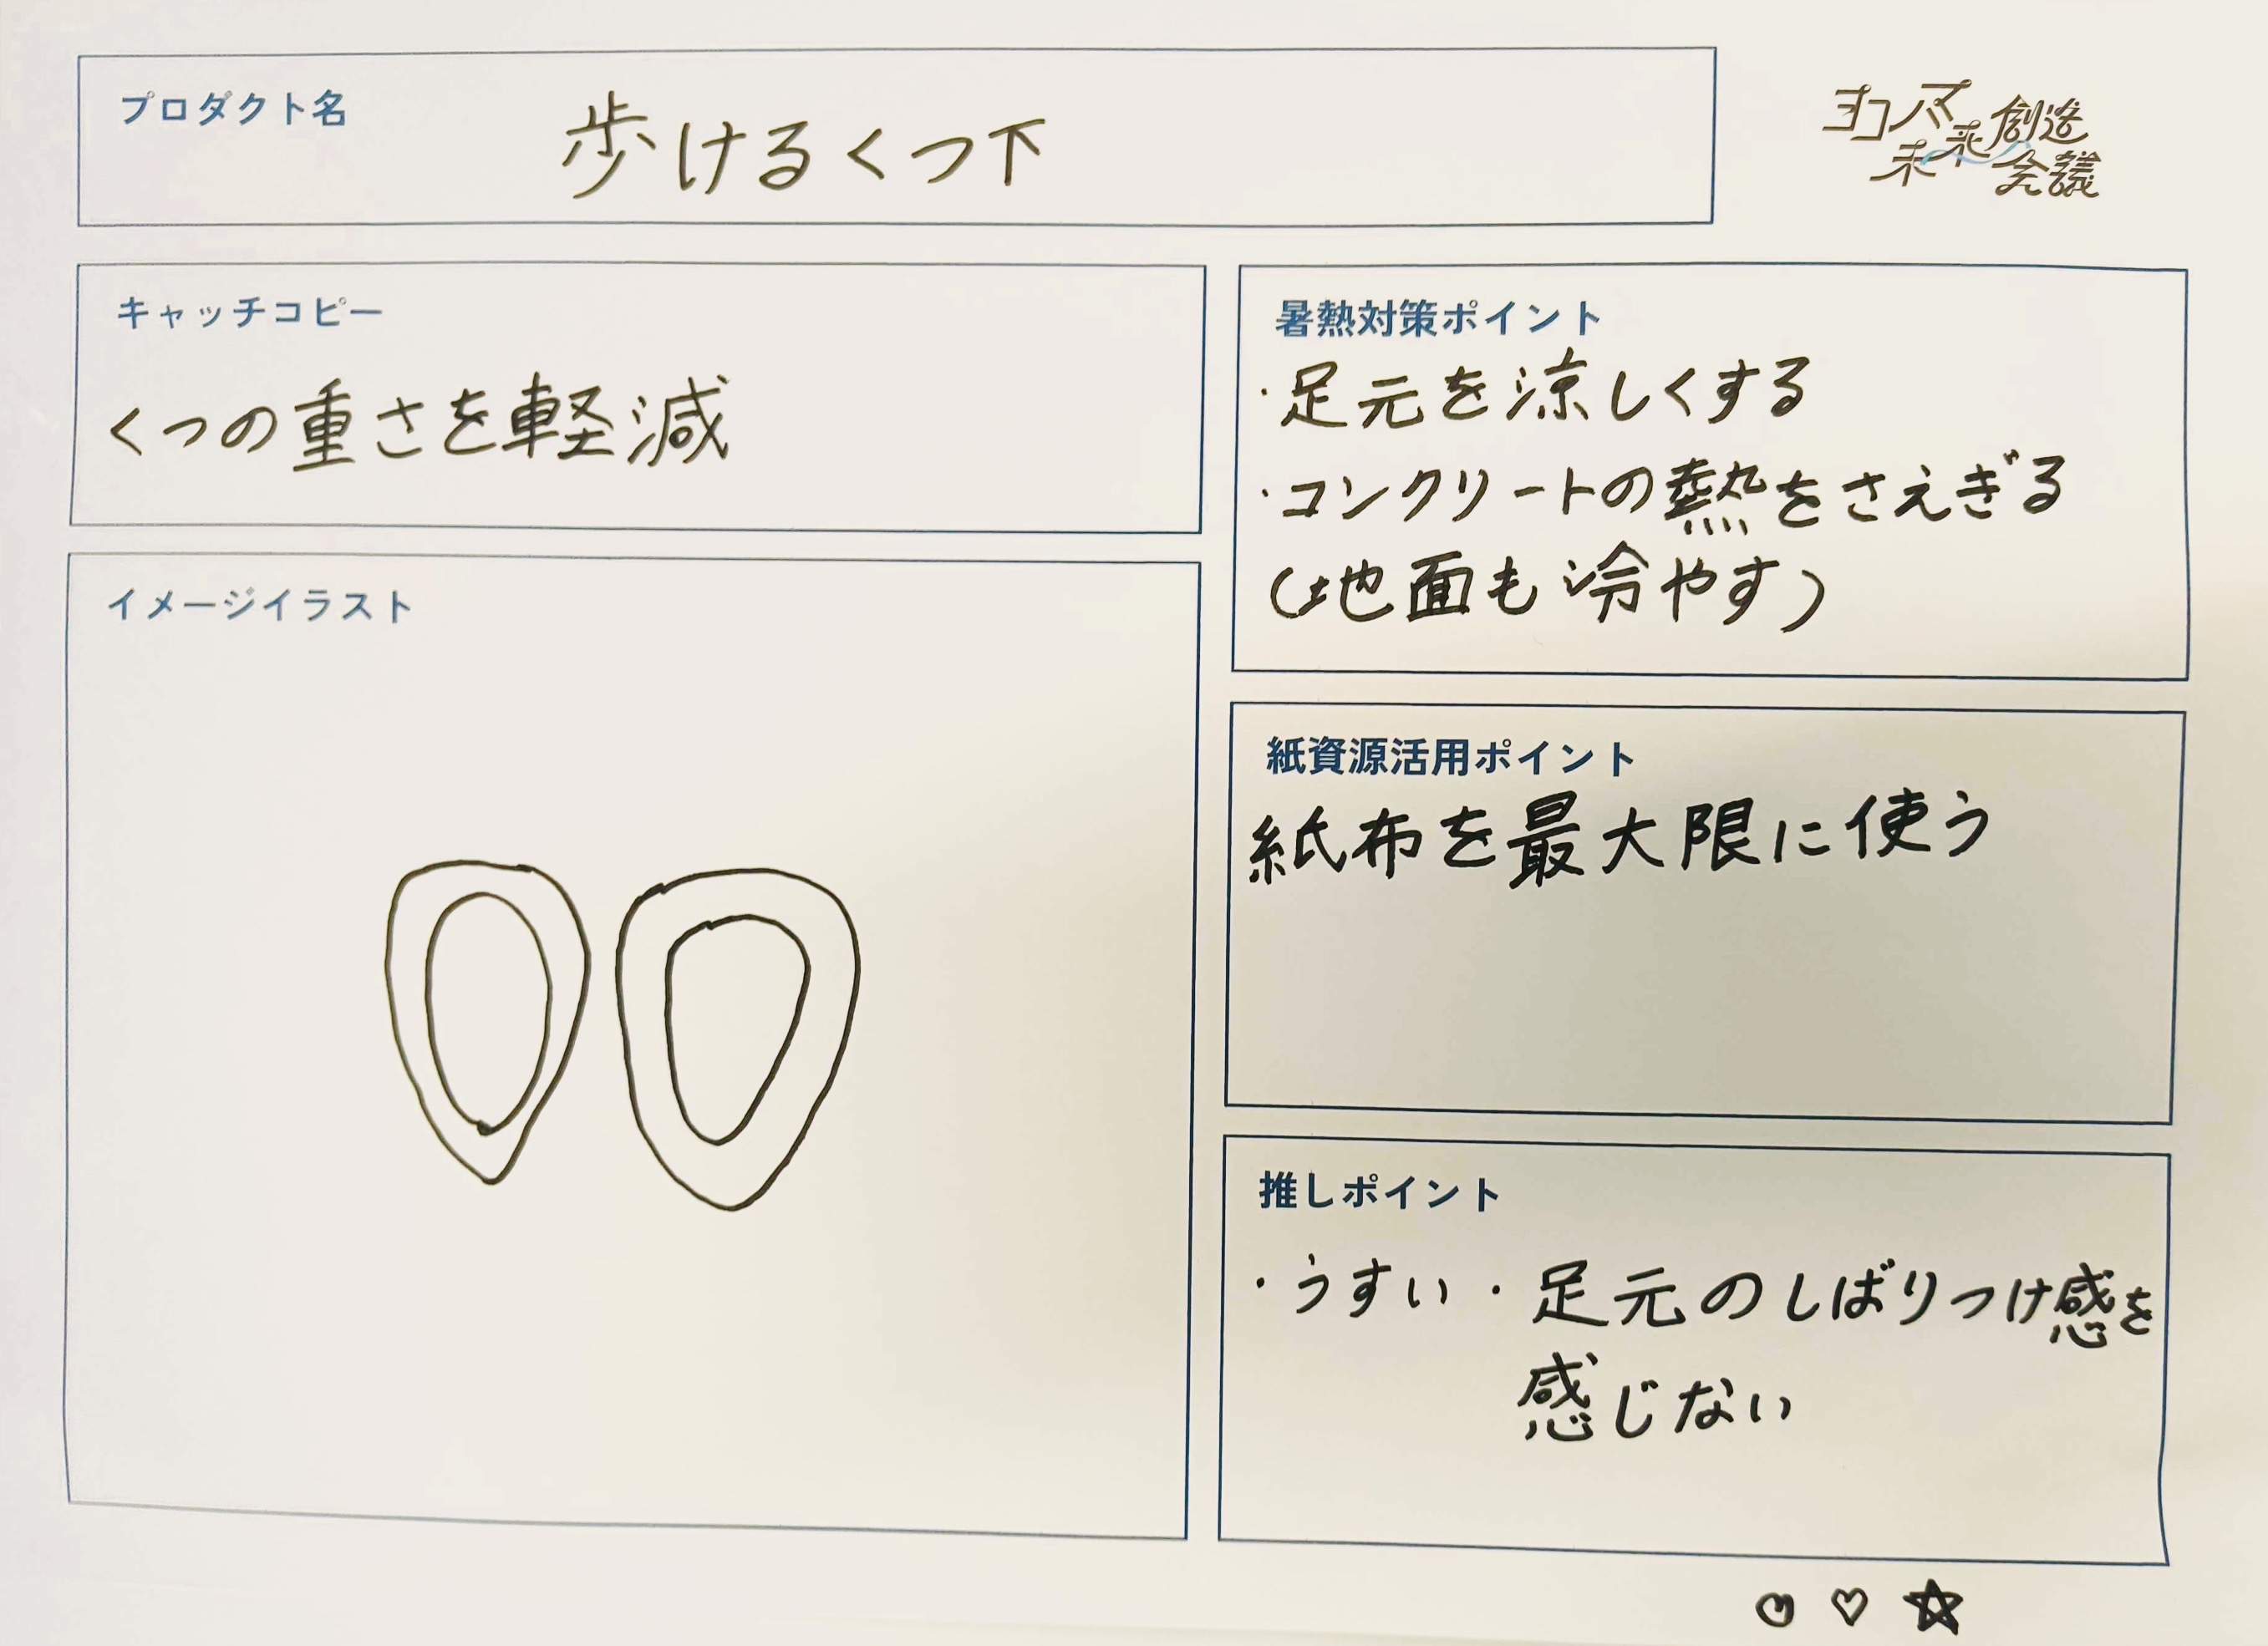 プロダクト名
歩けるくつ下
ヨコハマ未来創造会議
キャッチコピー
くつの重さを軽減
イメージイラスト
暑熱対策ポイント
・足元を涼しくする
・コンクリートの熱をさえぎる
(地面も冷やす)
紙資源活用ポイント
紙布を最大限に使う
推しポイント
・うすい・足元のしばりつけ感を
感じない